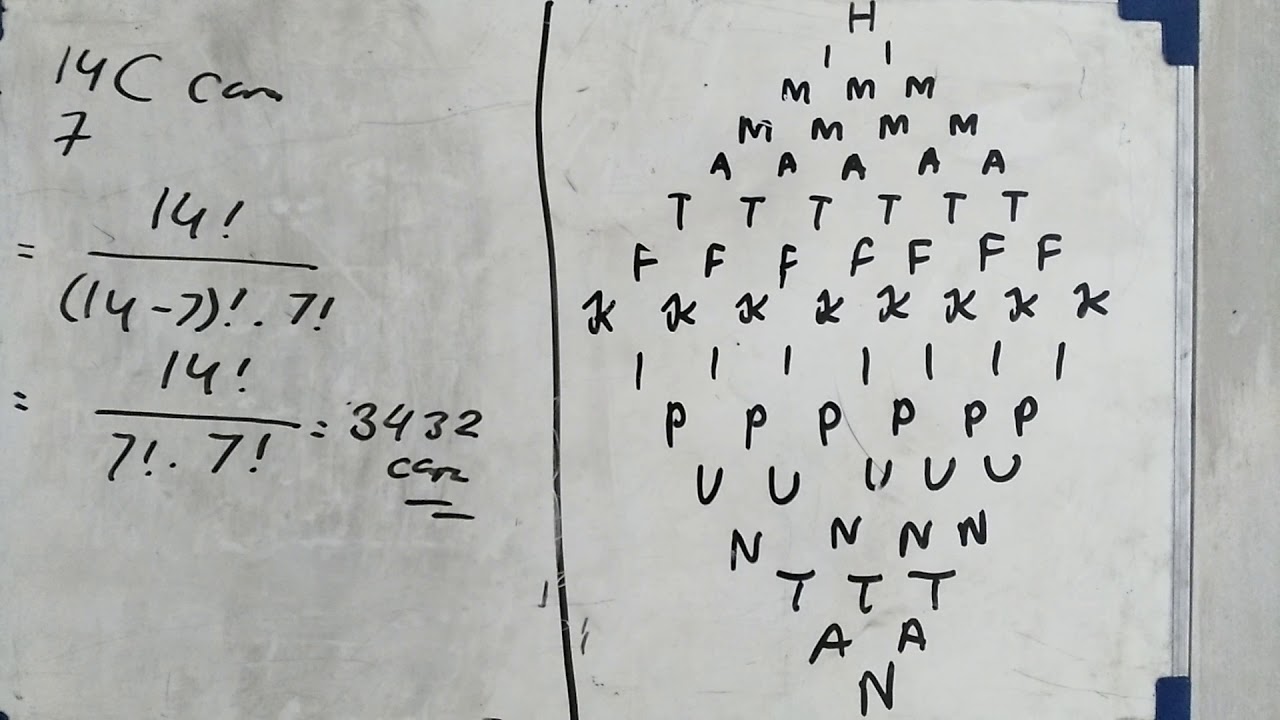 14C can
7
= 14!
(14-7)!. 7!
= 14!
7!. 7!
= 3432
can
H
I I
M M M
M M M M
A A A A A
T T T T T T
F F F F F F F
K K K K K K K K
I I I I I I I
P P P P P P
U U U U U
N N N N
T T T
A A
N